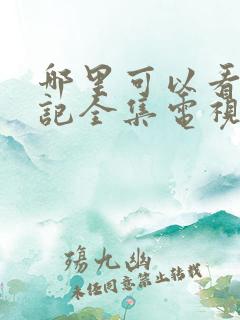 哪里可以看
記全集電視
殤九幽
未经同意禁止转载